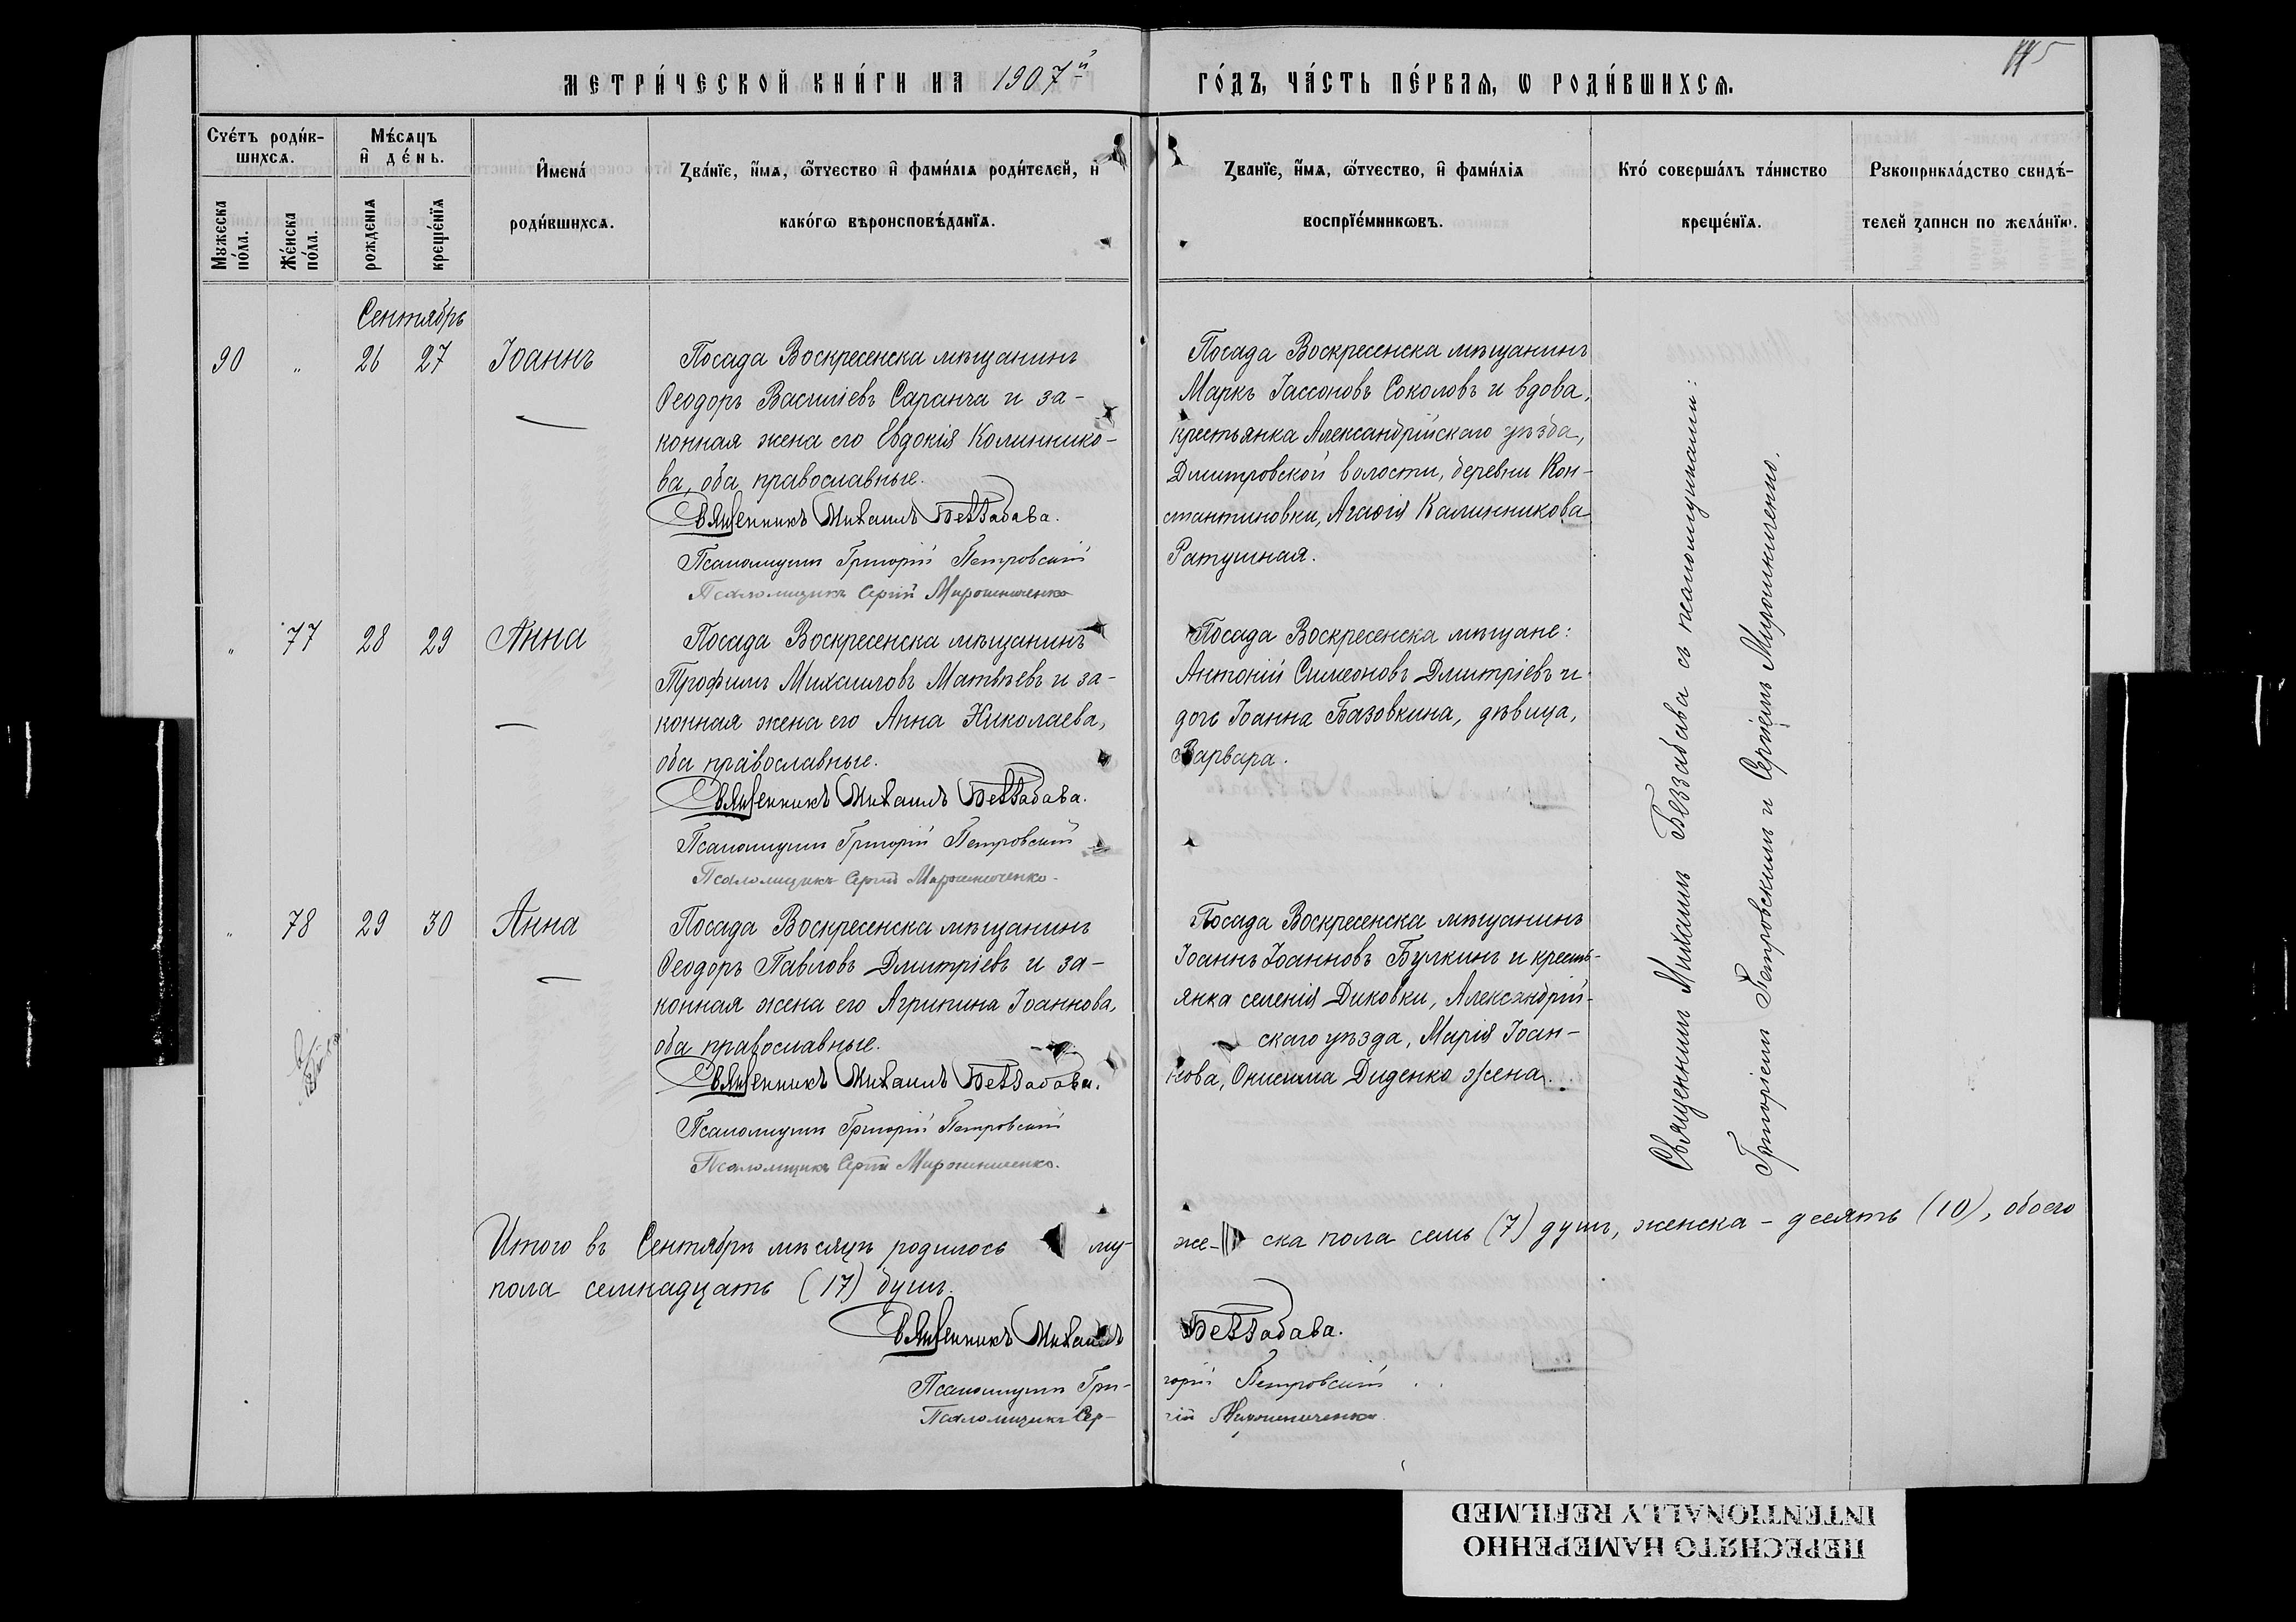 МЕТРИ́ЧЕСКОЙ КНИ́ГИ НА 1907й ГО́ДЪ, ЧА́СТЬ ПЕ́РВАѦ, Ѡ РОДИ́ВШИХСѦ.
Счéтъ роди́в-
шихсѧ.
Мꙋжеска
по́ла.
Же́нска
по́ла.
Мѣ́сѧцъ
и҆ де́нь.
рождені́ѧ
креще́нїѧ
И҆мена́
роди́вшихсѧ.
Зва́нїе, и҆́мѧ, ѻ҆́тчество и҆ фами́лїѧ роди́телей, и҆
како́гѡ вѣроисповѣ́данїѧ.
Зва́нїе, и҆́мѧ, ѻ҆́тчество, и҆ фами́лїѧ
воспрїе́мникѡвъ.
Кто́ соверша́лъ та́инство
креще́нїѧ.
Рꙋкоприкла́дство свидѣ́-
телей записи по жела́нїю.
Сентябрь
90 " 26 27 Іоаннъ
Посада Воскресенска мѣщанинъ
Ѳеодоръ Василіевъ Саранча и за-
конная жена его Евдокія Калиннико-
ва, оба православные.
Священникъ Михаилъ Беззабава.
Псаломщикъ Григорій Петровскій
Псаломщикъ Сергій Мирошниченко
Посада Воскресенска мѣщанинъ
Маркъ Іассоновъ Соколовъ и вдова,
крестьянка Александрійскаго уѣзда,
Дмитровской волости, деревни Кон-
стантиновки, Агаѳія Калинникова
Ратушная.
" 77 28 29 Анна
Посада Воскресенска мѣщанинъ
Трофимъ Михаиловъ Матвѣевъ и за-
конная жена его Анна Николаева,
оба православные.
Священникъ Михаилъ Беззабава.
Псаломщикъ Григорій Петровскій
Псаломщикъ Сергій Мирошниченко.
Посада Воскресенска мѣщане:
Антоній Симеоновъ Дмитріевъ и
дочь Іоанна Базовкина, дѣвица,
Варвара.
" 78 29 30 Анна
Посада Воскресенска мѣщанинъ
Ѳеодоръ Павловъ Дмитріевъ и за-
конная жена его Агрипина Іоаннова,
оба православные.
Священникъ Михаилъ Беззабава.
Псаломщикъ Григорій Петровскій
Псаломщикъ Сергій Мирошниченко.
Посада Воскресенска мѣщанинъ
Іоаннъ Іоанновъ Булкинъ и кресть-
янка селенія Диковки, Александрій-
скаго уѣзда, Марія Іоан-
нова, Онисима Диденко жена.
Священникъ Михаилъ Беззабава съ псаломщиками:
Григоріемъ Петровскимъ и Сергіемъ Мирошниченко.
Итого въ Сентябрѣ мѣсяцѣ родилось му-
же-ска пола семь (7) душъ, женска - десять (10), обоего
пола семнадцать (17) душъ.
Священникъ Михаилъ Беззабава.
Псаломщикъ Гри- горій Петровскій
Псаломщикъ Сер- гій Мирошниченко
ПЕРЕСНЯТО НАМЕРЕННО
INTENTIONALLY REFILMED